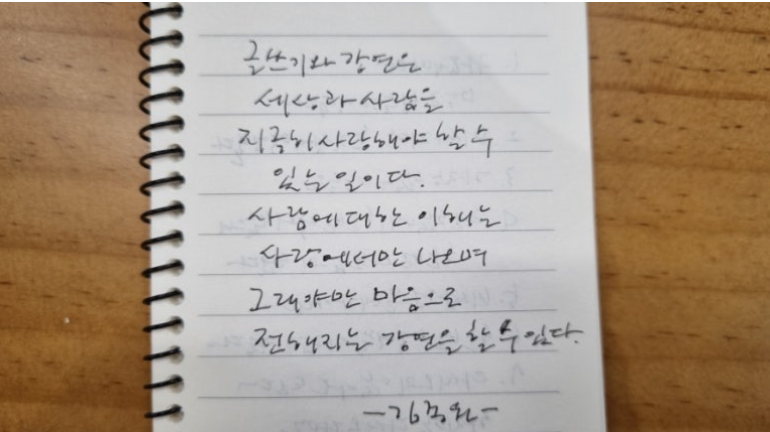 글쓰기와 강연은
세상과 사람을
지극히 사랑해야 할 수
있는 일이다.
사람에 대한 이해는
사랑에서만 나오며
그래야만 마음으로
전해지는 강연을 할 수 있다.